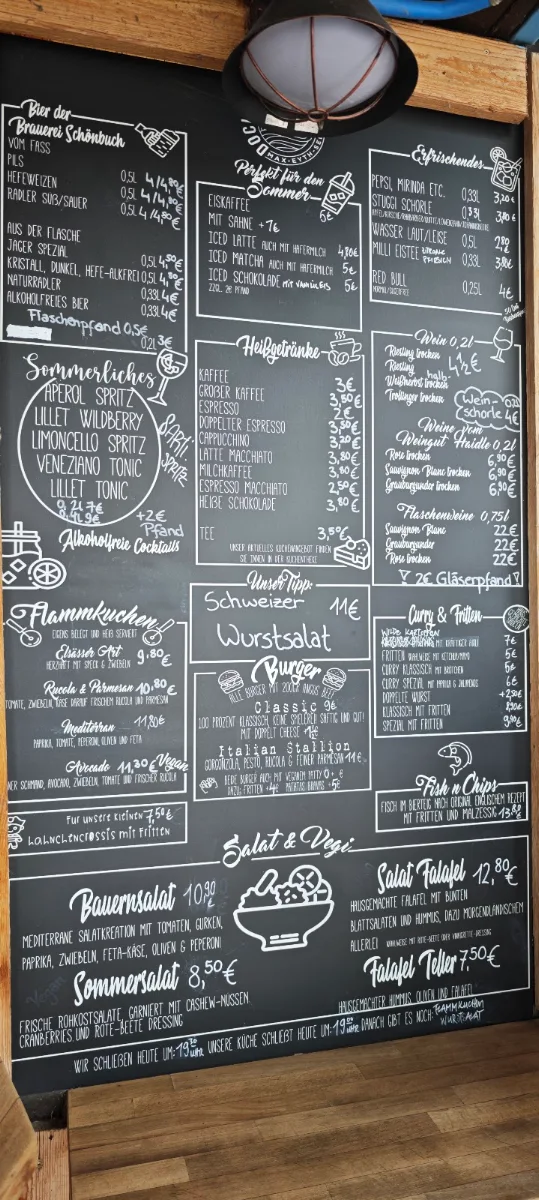 Bier der
Brauerei Schönbuch
VOM FASS
PILS 0,5L 4/4,80€
HEFEWEIZEN 0,5L 4/4,80€
RADLER SÜß/SAUER 0,5L 4/4,80€
AUS DER FLASCHE
JÄGER SPEZIAL 0,5L 4,50€
KRISTALL, DUNKEL, HEFE-ALKFREI 0,5L
NATURRADLER 0,33L 4€
ALKOHOLFREIES BIER 0,33L 4€
Flaschenpfand 0,5€
0,2L 3€
Sommerliches
APEROL SPRITZ
LILLET WILDBERRY
LIMONCELLO SPRITZ
VENEZIANO TONIC
LILLET TONIC
0,2L 7€
9€
SARTI SPRITZ
+2€
Pfand
Alkoholfreie Cocktails
MAX-EYTH-SEE
Perfekt für den
Sommer
EISKAFFEE 6€
MIT SAHNE +1€
ICED LATTE AUCH MIT HAFERMILCH 4,80€
ICED MATCHA AUCH MIT HAFERMILCH 5€
ICED SCHOKOLADE MIT VANILLEEIS 5€
ZZGL. 2€ PFAND
Erfrischendes
PEPSI, MIRINDA ETC. 0,33L 3,20€
STUGGI SCHORLE
WASSER LAUT/LEISE 0,5L 2,80€
MILLI EISTEE ZITRONE PFIRSICH 0,33L
RED BULL 0,25L 4€
NORMAL/SUGARFREE
Heißgetränke
KAFFEE 3€
GROßER KAFFEE 3,50€
ESPRESSO 2€
DOPPELTER ESPRESSO 3,50€
CAPPUCCINO 3,20€
LATTE MACCHIATO 3,80€
MILCHKAFFEE 3,80€
ESPRESSO MACCHIATO 2,50€
HEIßE SCHOKOLADE 3,80€
TEE 3,50€
UNSER AKTUELLES KUCHENANGEBOT FINDEN
SIE INNEN IN DER KUCHENTHEKE
Wein 0,2l
Riesling trocken
Riesling halb-
Weißherbst trocken
Trollinger trocken
4½€
Wein-
schorle 4€
Weine vom
Weingut Haidle 0,2l
Rose trocken 6,90€
Sauvignon Blanc trocken 6,90€
Grauburgunder trocken 6,90€
Flaschenweine 0,75l
Sauvignon Blanc 22€
Grauburgunder 22€
Rose trocken 22€
2€ Gläserpfand
Unser Tipp:
Schweizer 11€
Wurstsalat
Flammkuchen
EIGENS BELEGT UND HEIß SERVIERT
Elsässer Art 9,80€
HERZHAFT MIT SPECK & ZWIEBELN
Rucola & Parmesan 10,80€
TOMATE, ZWIEBELN, KÄSE DARAUF FRISCHEM RUCOLA UND PARMESAN
Mediterran 11,80€
PAPRIKA, TOMATE, PEPERONI, OLIVEN UND FETA
Avocado 11,30€ Vegan
SCHMAND, AVOCADO, ZWIEBELN, TOMATE UND FRISCHER RUCOLA
Für unsere kleinen 7,50€
Hähnchencrossis mit Fritten
Burger
ALLE BURGER MIT 200GR ANGUS BEEF
Classic 9€
100 PROZENT KLASSISCH, KEINE SPIELEREI SAFTIG UND GUT!
MIT DOPPELT CHEESE
Italian Stallion
GORGONZOLA, PESTO, RUCOLA & FEINER PARMESAN 11€
JEDE BURGER AUCH MIT VEGANEM PATTY
DAZU FRITTEN +4€ PATATAS BRAVAS +5€
Curry & Fritten
WILDE KARTOFFELN
MIT KRÄUTRIGER AIOLI 7€
FRITTEN WAHLWEISE MIT KETCHUP/MAYO 5€
CURRY KLASSISCH MIT BRÖTCHEN 5€
CURRY SPEZIAL MIT PAPRIKA & JALAPENOS 6€
DOPPELTE WURST +2,50€
KLASSISCH MIT FRITTEN
SPEZIAL MIT FRITTEN
Fish n Chips
FISCH IM BIERTEIG NACH ORIGINAL ENGLISCHEM REZEPT
MIT FRITTEN UND MALZESSIG 13,80€
Salat & Vegi
Bauernsalat 10,90€
MEDITERRANE SALATKREATION MIT TOMATEN, GURKEN,
PAPRIKA, ZWIEBELN, FETA-KÄSE, OLIVEN & PEPERONI
Sommersalat 8,50€
FRISCHE ROHKOSTSALATE, GARNIERT MIT CASHEW-NUSSEN,
CRANBERRIES UND ROTE-BEETE DRESSING
Salat Falafel 12,80€
HAUSGEMACHTE FALAFEL MIT BUNTEN
BLATTSALATEN UND HUMMUS, DAZU MORGENLÄNDISCHEM
ALLERLEI WAHLWEISE MIT ROTE-BEETE ODER VINAIGRETTE-DRESSING
Falafel Teller 7,50€
HAUSGEMACHTER HUMMUS, OLIVEN UND FALAFEL
WIR SCHLIEßEN HEUTE UM: 19³⁰ UHR UNSERE KÜCHE SCHLIEßT HEUTE UM: 19⁰⁰ UHR DANACH GIBT ES NOCH: FLAMMKUCHEN
WURSTSALAT